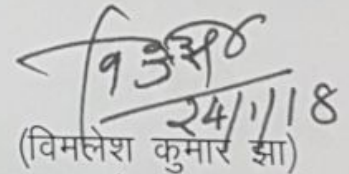 24/1/18
(विमलेश कुमार झा)